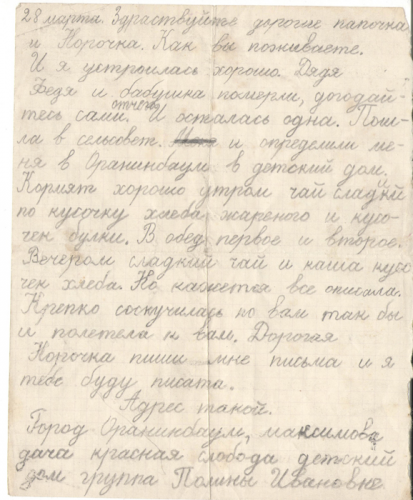 28 марта. Здраствуйте дорогие папочка
и Норочка. Как вы поживаете.
И я устроилась хорошо. Дядя
Федя и бабушка померли, догодай-
тесь сами. отчего И осталась одна. Пош-
ла в сельсовет. и определили ме-
ня в Оранинбаум в детский дом.
Кормят хорошо утром чай сладкй
по кусочку хлеба жареного и кусо-
чек булки. В обед первое и второе.
Вечером сладкий чай и каша кусо
чек хлеба. Но кажется все описала.
Крепко соскучилась по вам так бы
и полетела к вам. Дорогая
Норочка пиши мне письма и я
тебе буду писать.
Адрес такой.
Город Оранинбаум, максимова
дача красная слобода детский
дом группа Полины Ивановне